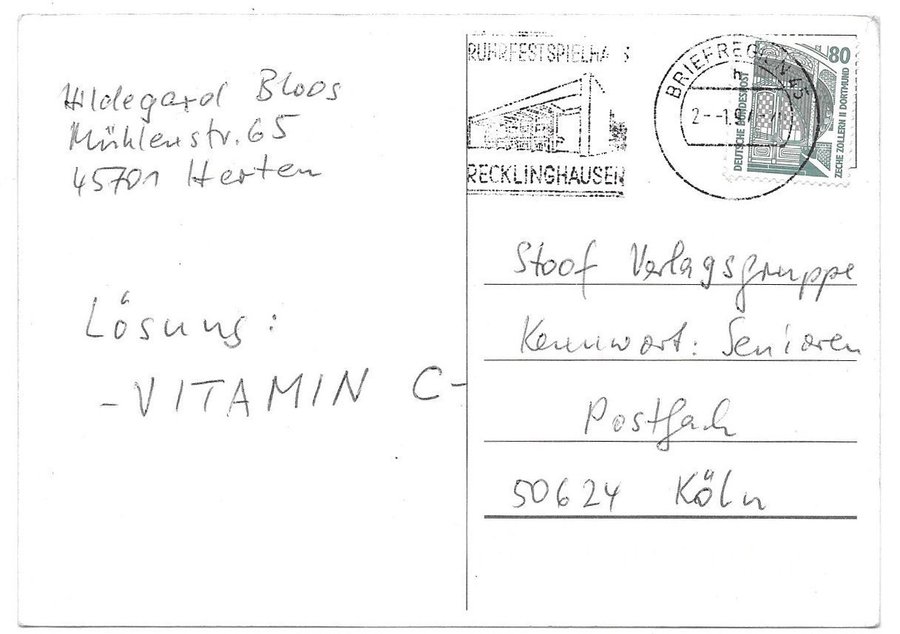 Hildegard Bloos
Mühlenstr. 65
45701 Herten
Lösung:
-VITAMIN C-
RUHRFESTSPIELHA S
RECKLINGHAUSEN
BRIEFREGION 45
80
DEUTSCHE BUNDESPOST
ZECHE ZOLLERN II DORTMUND
Stoof Verlagsgruppe
Kennwort: Senioren
Postfach
50624 Köln